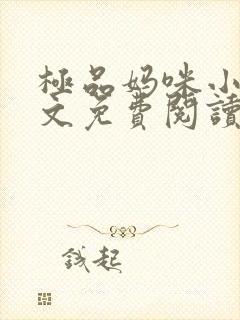 極品妈咪小
文免費閱讀
钱起